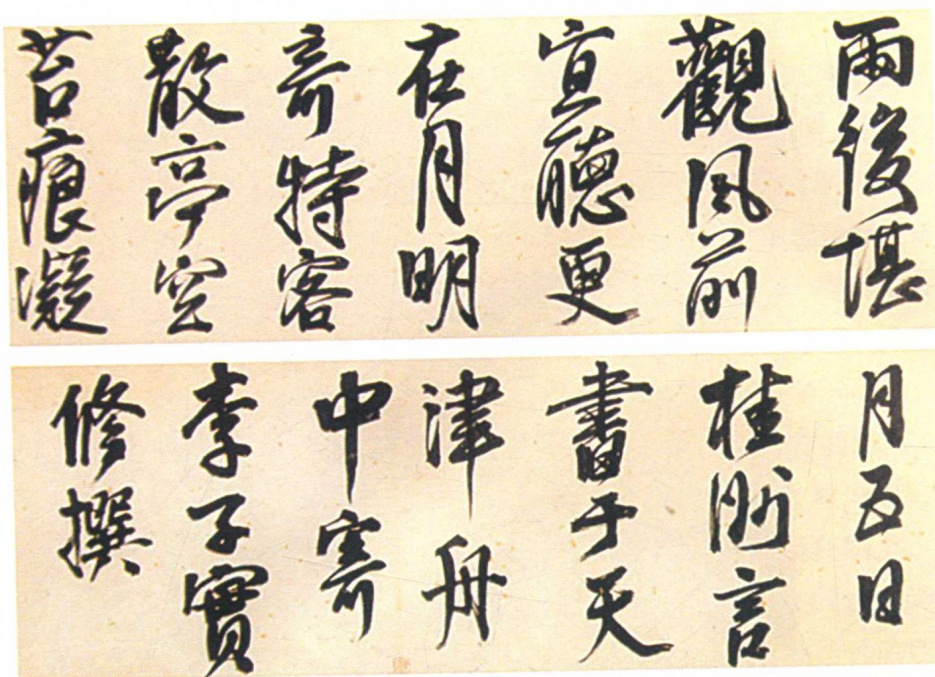 雨後堪
觀風前
宣聽更
在月明
奇特客
散亭空
苔痕凝
月五日
桂洲言
書于天
津舟
中寄
李子實
修撰